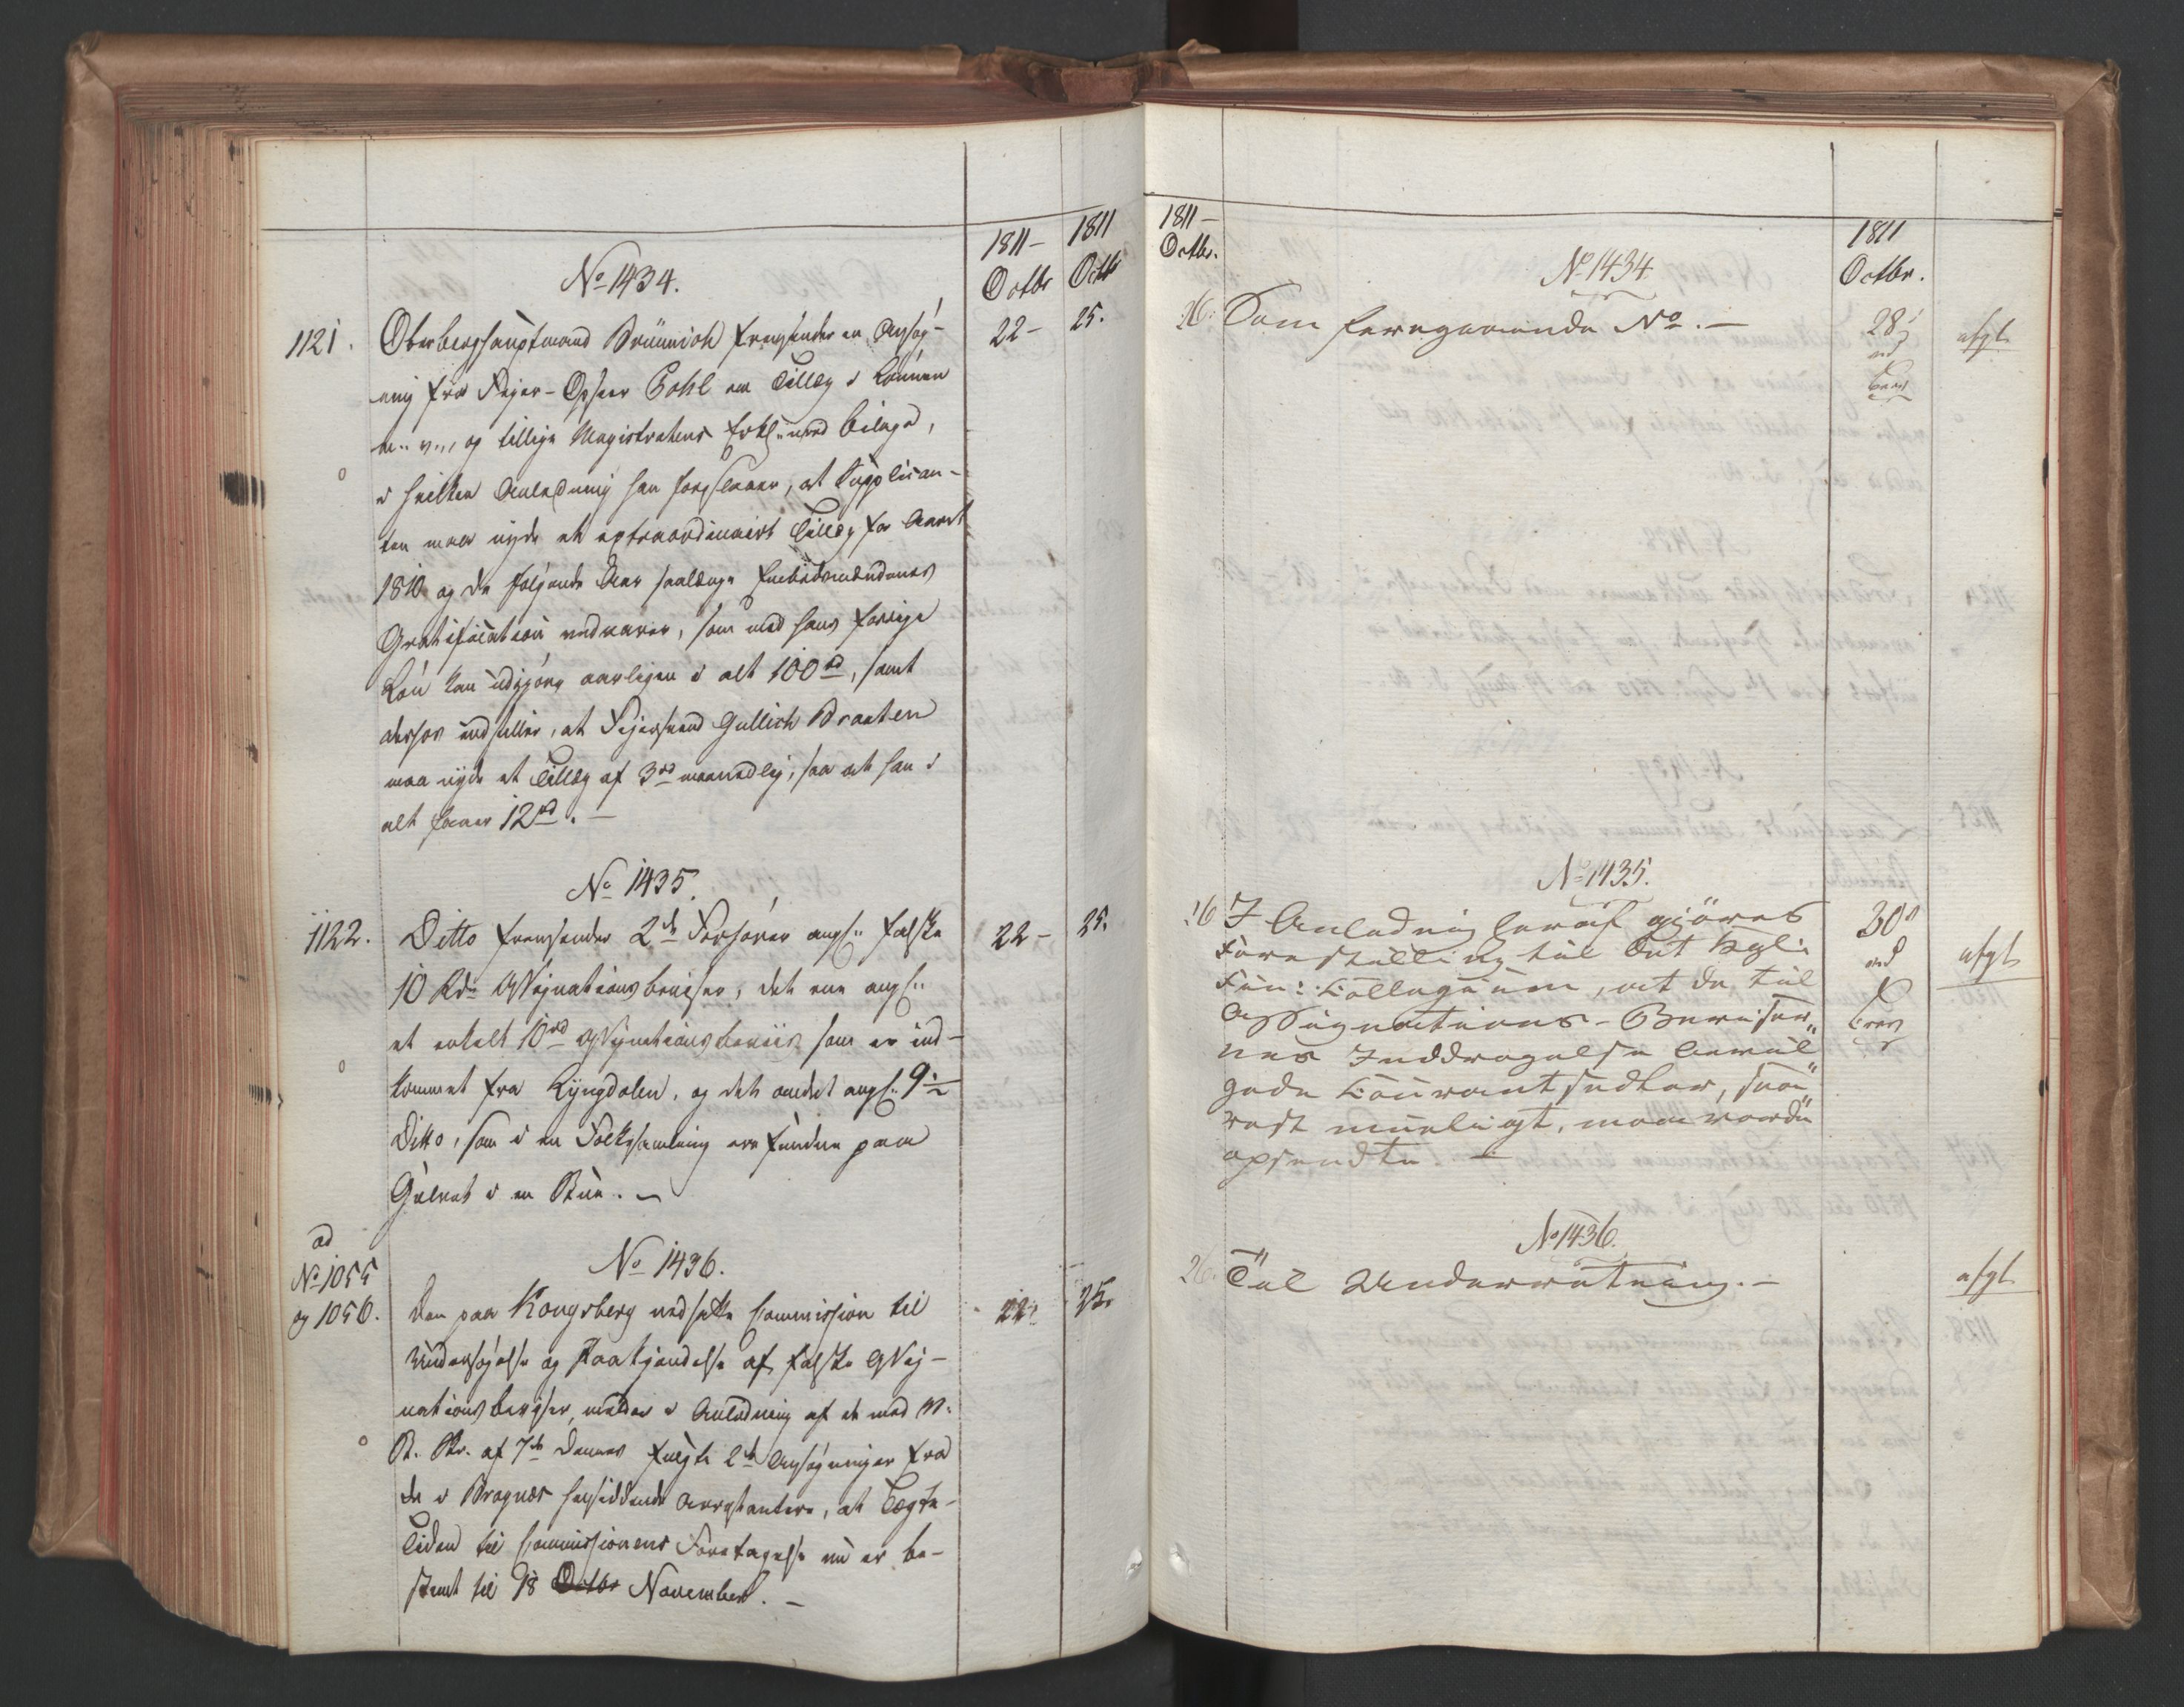 1811-
Octbr
1811
Octb
No 1434.
1121.
Oberberghauptmand Brünnich fremsender en Ansøg-
ning fra Sejer-Opseer Pohl om Tillæg i Lønnen
m: v:, og tillige Magistratens Erkl: med Bilage,
i hvilken Anledning han foreslaaer, at Supplican-
ten maa nyde et extraordinairt Tillæg for Aaret
1810 og de følgende Aar saalænge Embedsmændenes
Gratification vedvarer, som med hans forrige
Løn kan udgjøre aarligen i alt 100 rd, samt
derhos indstiller, at Sejersvend Gullich Braaten
maa nyde et Tillæg af 3 rd maanedlig, saa at han i
alt faaer 12 rd. -
22-
25.
No 1435.
1122.
Ditto fremsender 2de Forhører angl: falske
10 Rd: Assignationsbeviser, det ene angl:
et enkelt 10 rd Assignationsbeviis som er ind-
kommet fra Lyngdalen, og det andet angl: 9
Ditto, som i en Folkesamling ere fundne paa
Gulvet i en Stue. -
22-
25.
ad
No 1055
og 1056.
No 1436.
Den paa Kongsberg nedsatte Commission til
Undersøgelse og Paakjendelse af falske Assig-
nationsbeviser, melder i Anledning af de med
af 7de dennes fulgte 2de Ansøgninger fra
de i Bragnæs hensiddende Arrestantere, at Tægte-
Tiden til Commissionens Foretagelse nu er be-
stemt til 18 Octbr November. -
22
25.
1811-
Octbr.
1811
Octbr.
No 1434
26.
Som foregaaende No. -
28
afgl.
No 1435.
26
I Anledning heraf gjöres
Forestilling til Det Kgl:
Fin: Collegium, at de til
Assignations-Beviser"
nes Inddragelse bevil
gede Courantsedler, snar"
rest mueligt, maa vorde
opsendte. -
30
afgl.
No 1436.
26.
Til Underretning. -
afgl.